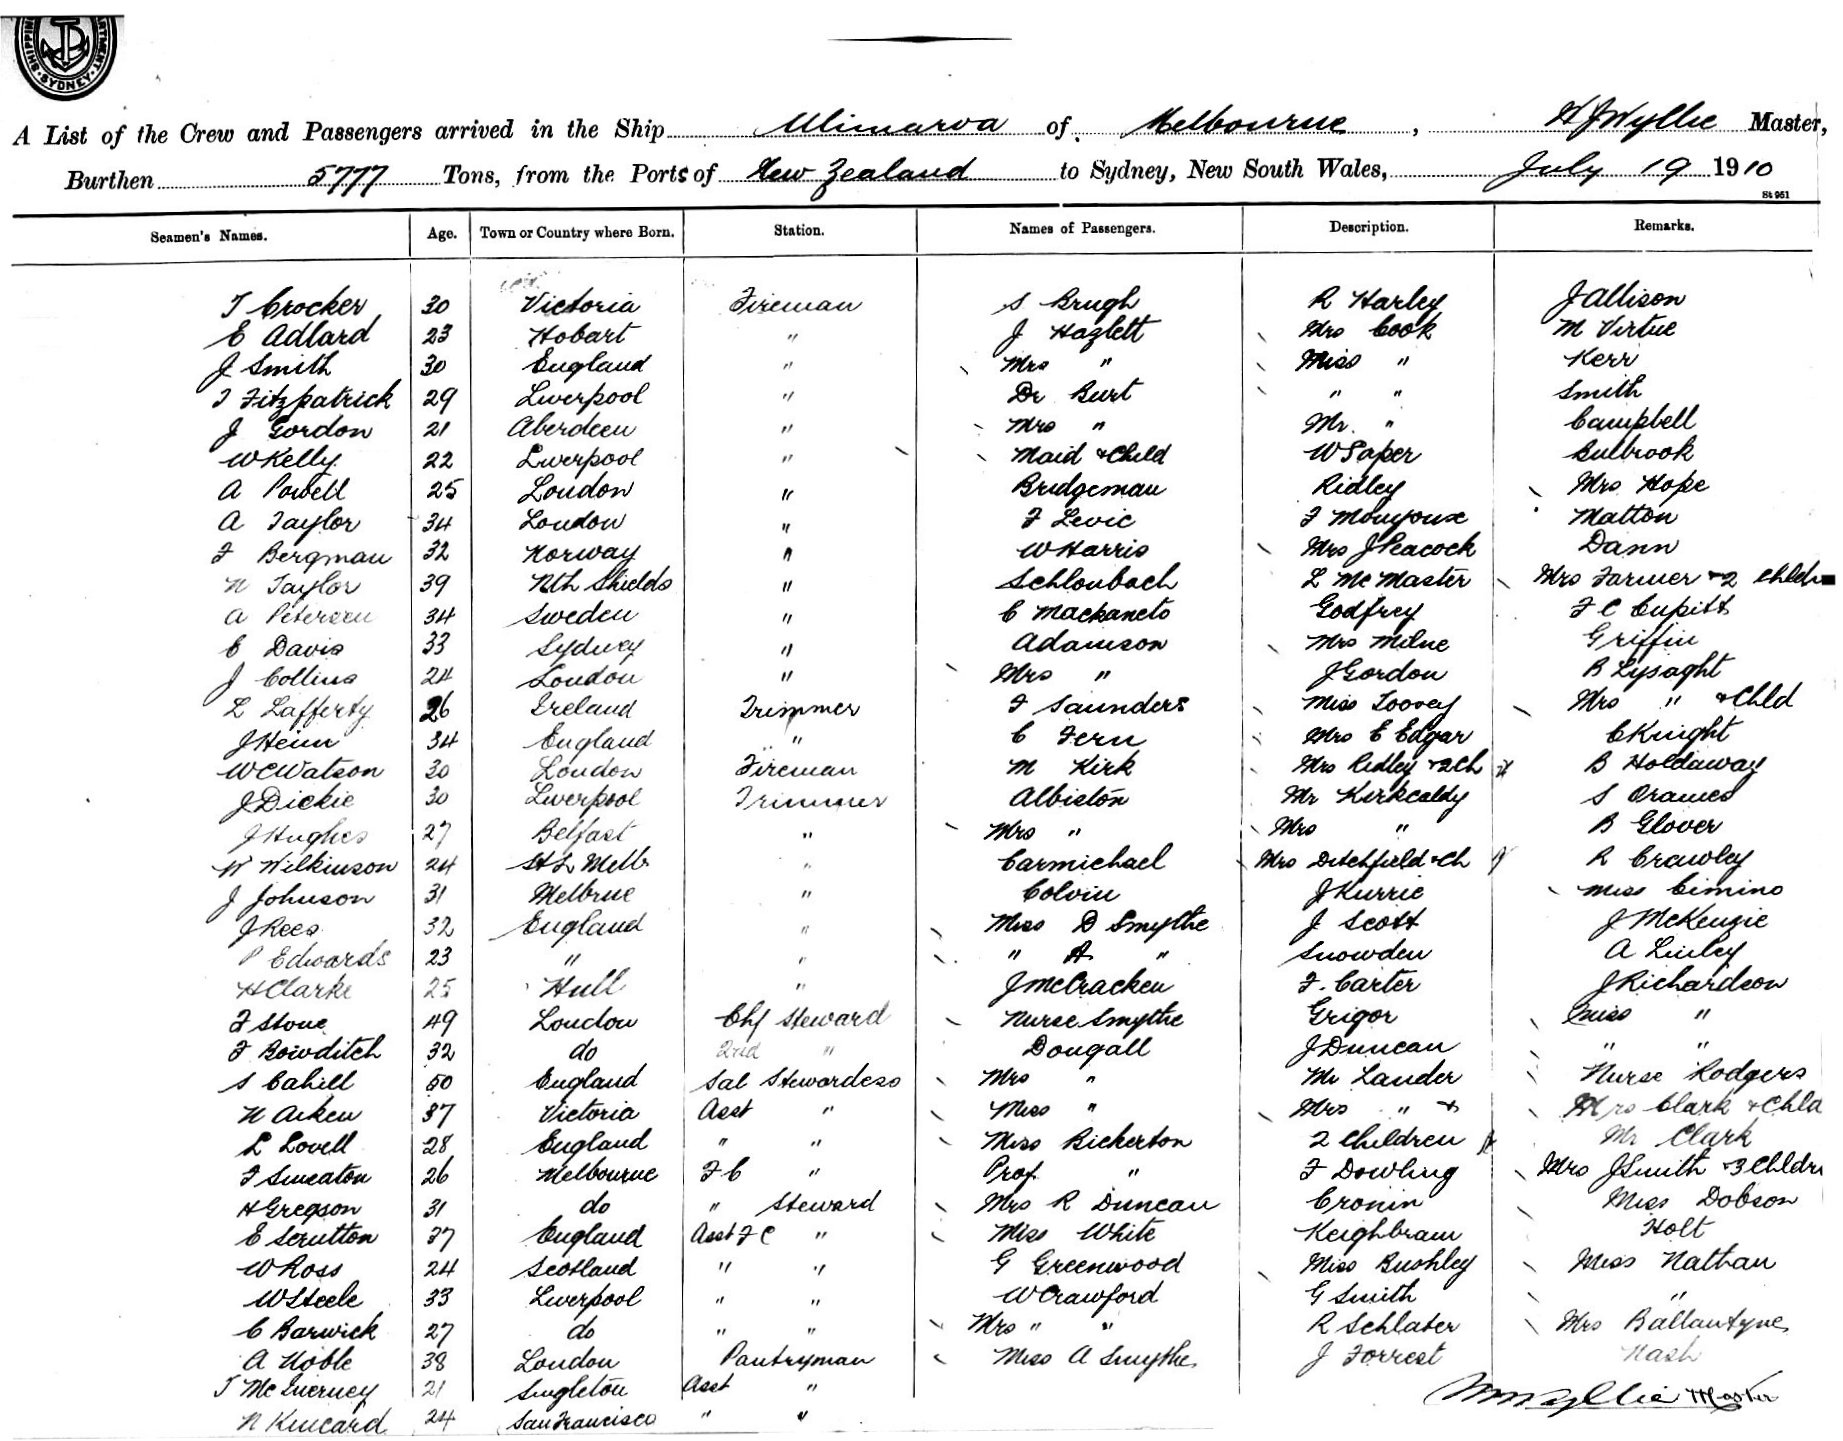 SYDNEY
A List of the Crew and Passengers arrived in the Ship Ulimaroa of Melbourne, W J Wyllie Master,
Burthen 5777 Tons, from the Ports of New Zealand to Sydney, New South Wales, July 19 1910
St 951
Seamen's Names. Age. Town or Country where Born. Station. Names of Passengers. Description. Remarks.
T Crocker 30 Victoria Fireman S Brugh R Harley J Allison
E Adlard 23 Hobart " J Hazlett Mrs Cook M Virtue
J Smith 30 England " Mrs " Miss " Kerr
T Fitzpatrick 29 Liverpool " Dr Burt " " Smith
J Gordon 21 Aberdeen " Mrs " Mr. " Campbell
W Kelly 22 Liverpool " Maid & Child W Soper Bulbrook
A Powell 25 London " Bridgeman Ridley Mrs Hope
A Taylor 34 London " F Levic F Matton
F Bergman 32 Norway " W Harris Mrs J Peacock Dann
N Taylor 39 Nth Shields " Schloubach L McMaster Mrs Farmer & 2 Chldn
A Petersen 34 Sweden " C Godfrey F C Cupitt
C Davis 33 Sydney " Adamson Mrs Milne Griffin
J Collins 24 London " Mrs " J Gordon B Lysaght
L Lafferty 26 Ireland Trimmer F Saunders Miss Toovey Mrs " & Chld
J Heinr 34 England " C Fern Mrs E Edgar C Knight
W C Watson 30 London Fireman M Kirk Mrs Ridley & 2 Ch B Holdaway
J Dickie 30 Liverpool Trimmer Albiston Mr Kirkcaldy S Orames
J Hughes 27 Belfast " Mrs " Mrs " B Glover
W Wilkinson 24 Sth Melb. " Carmichael Mrs Ditchfield & Ch R Crawley
J Johnson 31 Melbrne " Colvin J Kurrie Miss Cimino
J Rees 32 England " Miss D Smythe J Scott J McKenzie
P Edwards 23 " " " A " Snowden A Linley
H Clarke 25 Hull " J McCracken F. Carter J Richardson
F Stone 49 London Chf Steward Nurse Smythe Grigor Miss "
F Bowditch 32 do 2nd " Dougall J Duncan " "
S Cahill 50 England Sal Stewardess Mrs " Mr Lander Nurse Rodgers
N Aiken 37 Victoria Asst " Miss " Mrs " & Mrs Clark & Chld
L Lovell 28 England " " Miss Bickerton 2 Children Mr Clark
F Smeaton 26 Melbourne F C " Prof. " F Dowling Mrs J Smith & 3 Chldrn
H Gregson 31 do " Steward Mrs R Duncan Cronin Miss Dobson
E Scrutton 37 England Asst F C " Miss White Keighbram Holt
W Ross 24 Scotland " " G Greenwood Miss Bushley Miss Nathan
W Steele 33 Liverpool " " W Crawford G Smith "
C Barwick 27 do " " Mrs " " R Schlater Mrs Ballantyne
A Noble 38 London Pantryman Miss A Smythe J Forrest Nash
T McInerney 21 Singleton Asst "
N Kincard 24 San Francisco " "
Wyllie Master